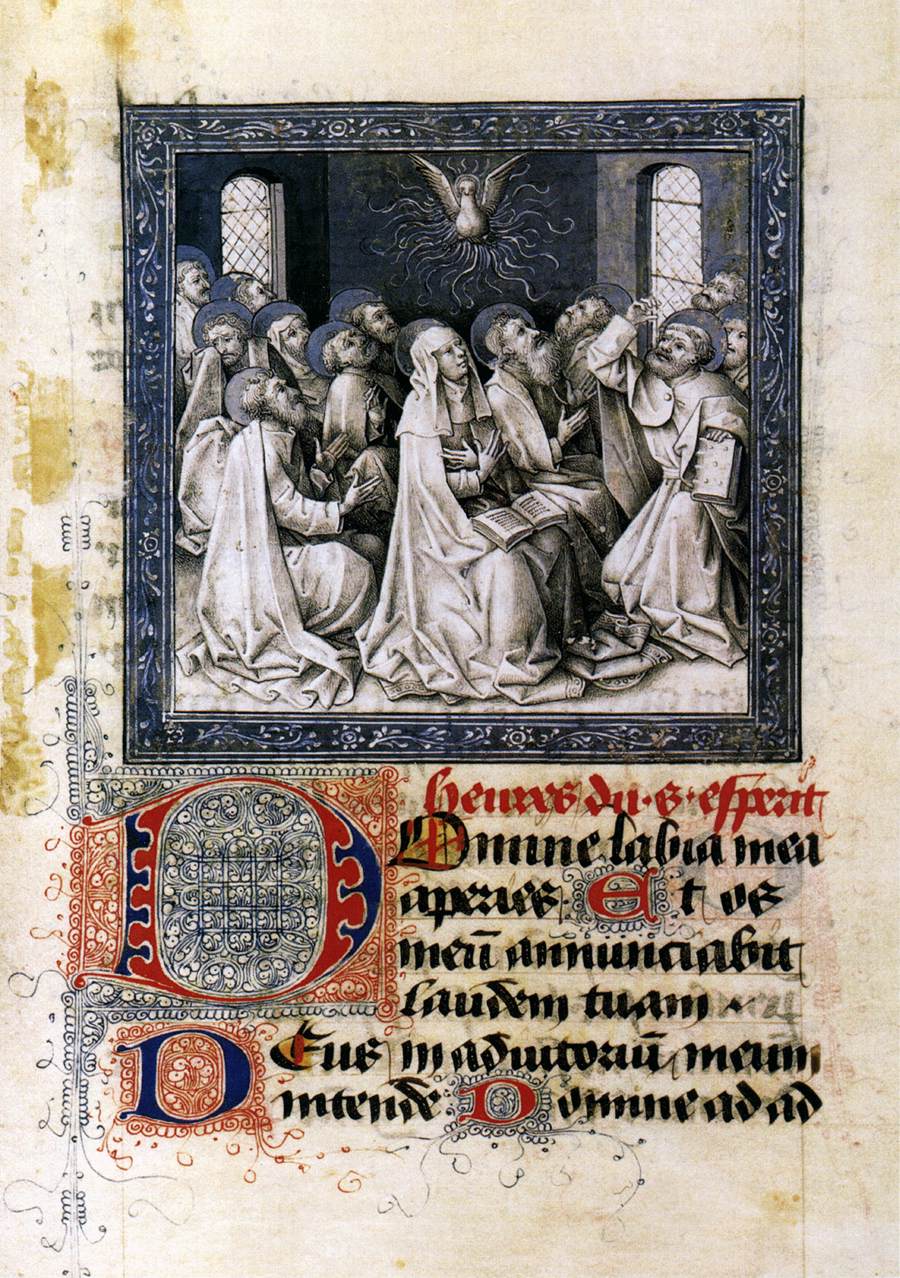 heures du · s · esperit
Domine labia mea
aperies. Et os
meū annunciabit
laudem tuam
Deus in adiutoriū meum
intende Domine ad ad